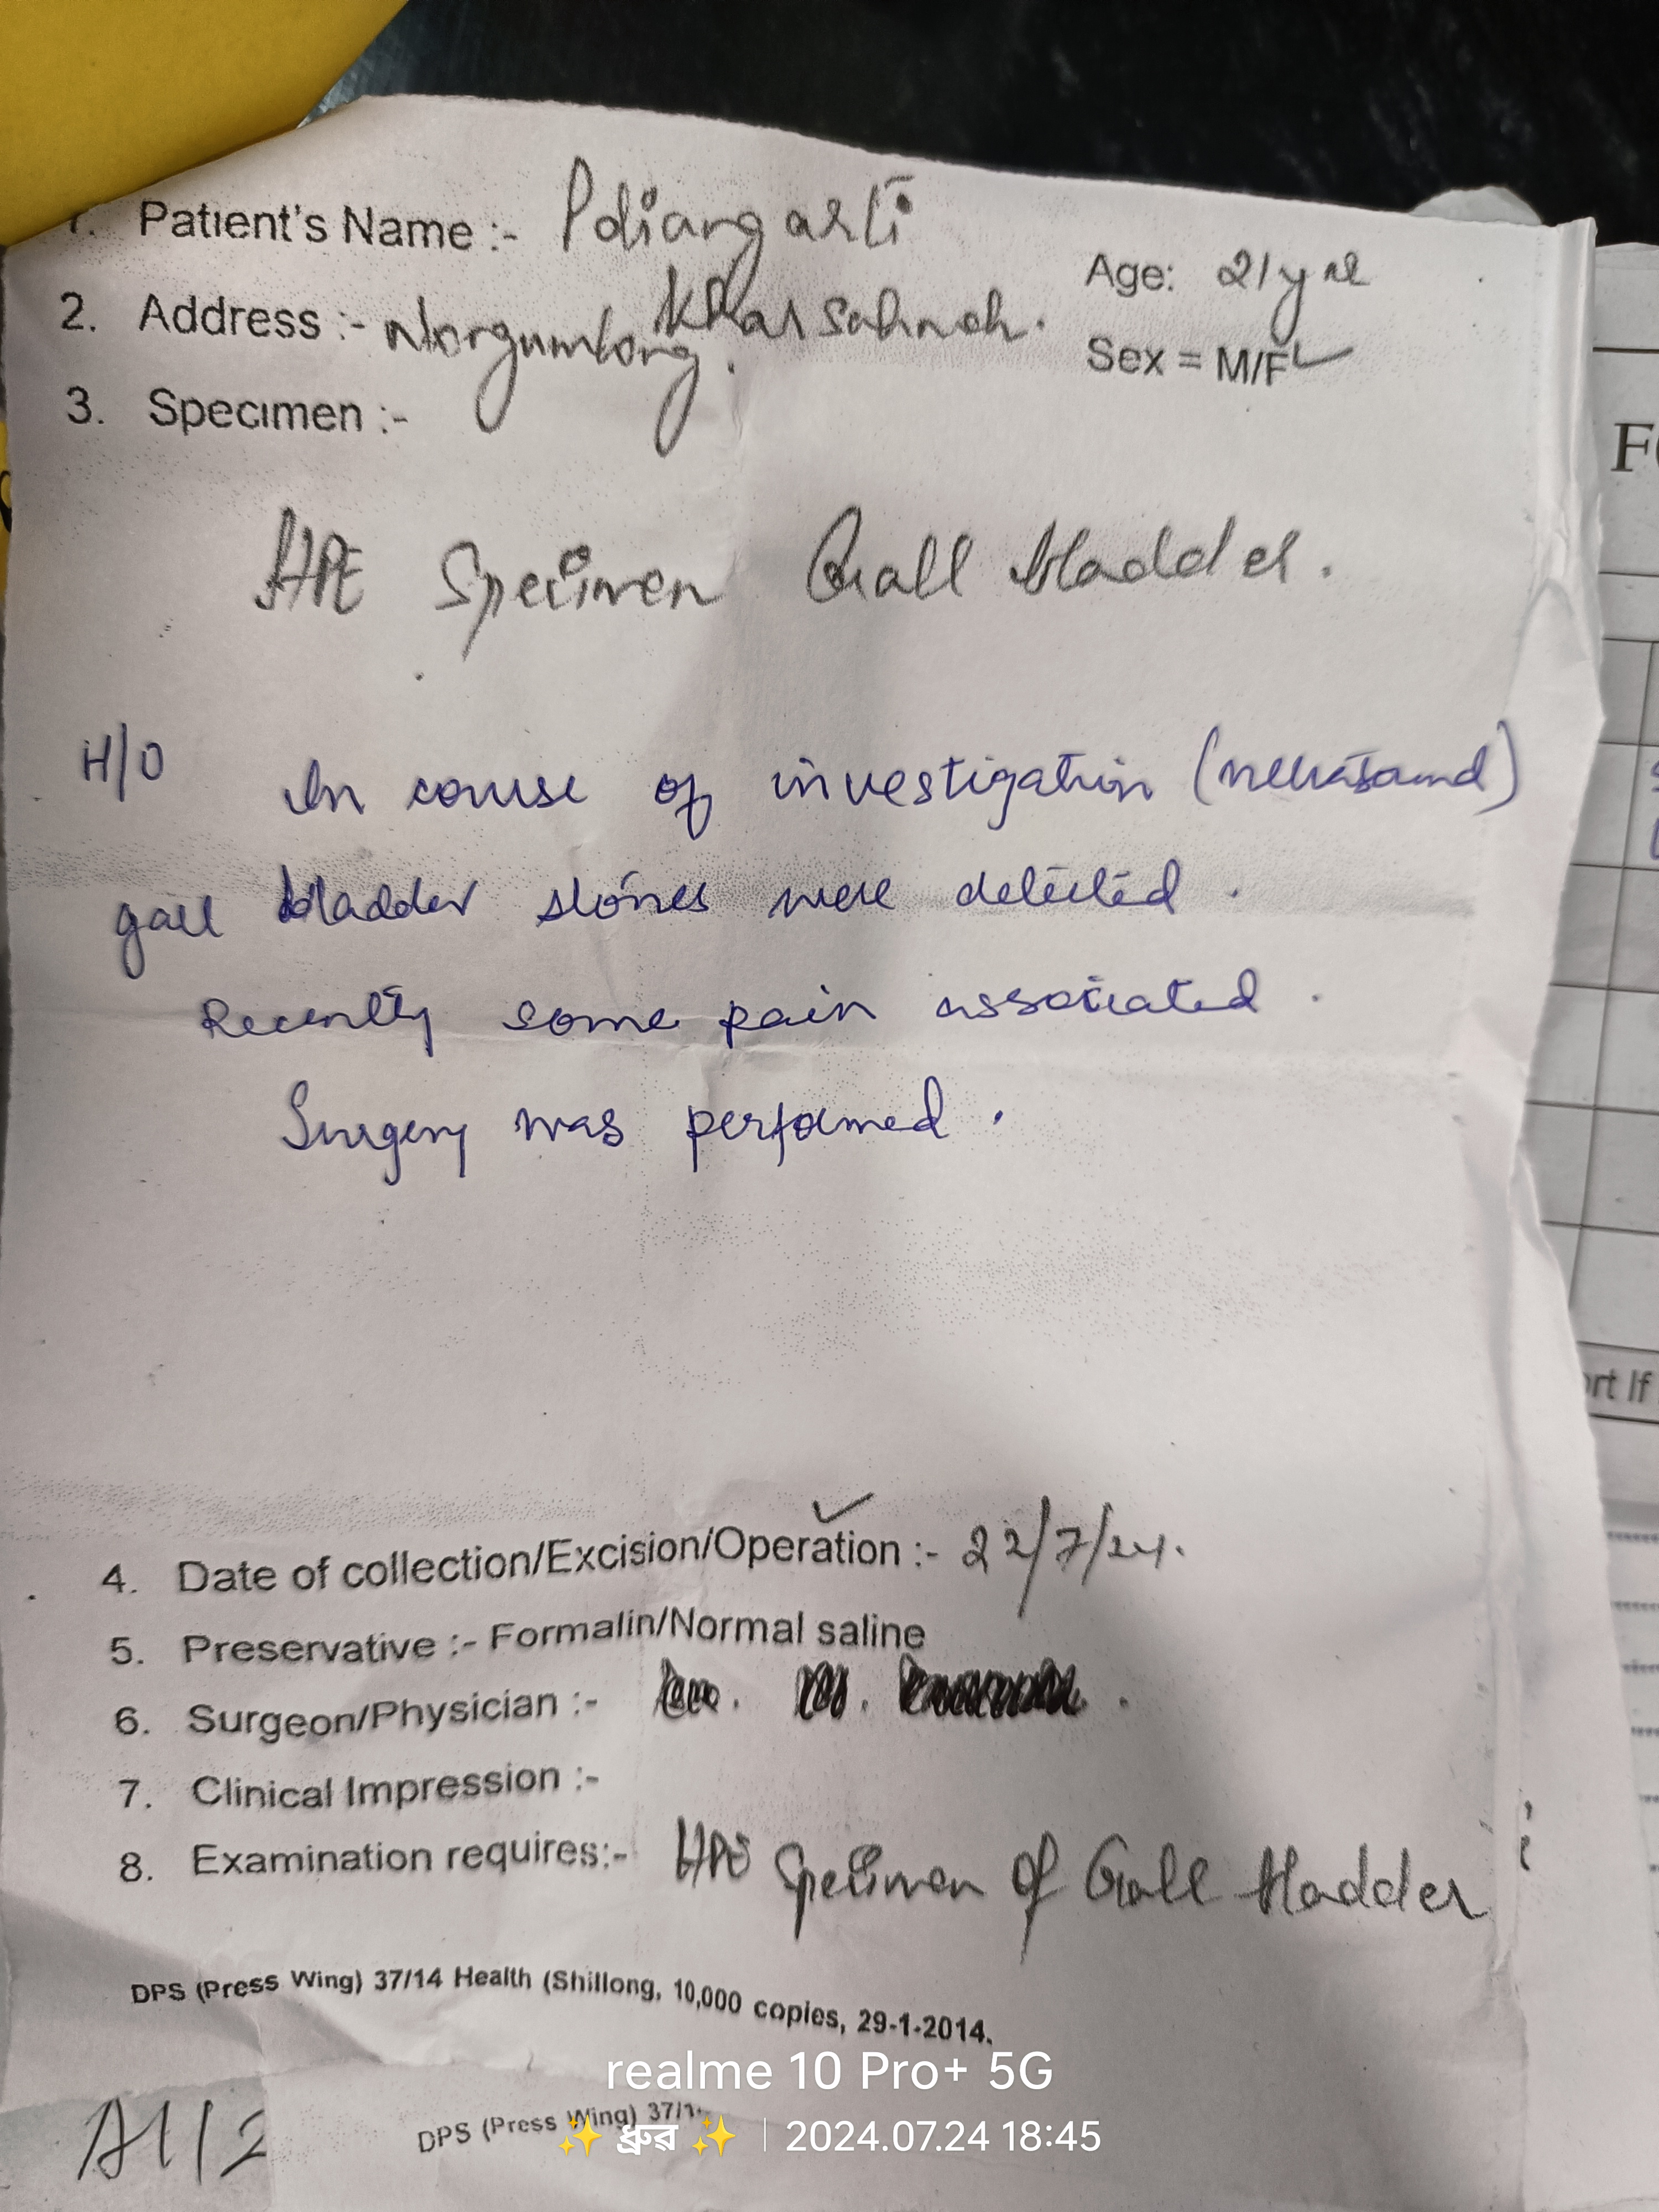 1. Patient's Name :- Pdiangarti
Kharsahnoh.
Age: 21 yrs
2. Address :- Norgumlong.
Sex = M/F ✓
3. Specimen :-
HPE Specimen Gall bladder.
H/O In course of investigation (ultrasound)
gall bladder stones were detected.
Recently some pain associated.
Surgery was performed.
4. Date of collection/Excision/Operation :- 22/7/24.
5. Preservative :- Formalin/Normal saline
6. Surgeon/Physician :-
7. Clinical Impression :-
8. Examination requires:- HPE Specimen of Gall bladder
DPS (Press Wing) 37/14 Health (Shillong, 10,000 copies, 29-1-2014.
A1/2
DPS (Press Wing) 37/1
realme 10 Pro+ 5G
✨ ধ্ৰুৱ ✨ | 2024.07.24 18:45
F
rt If